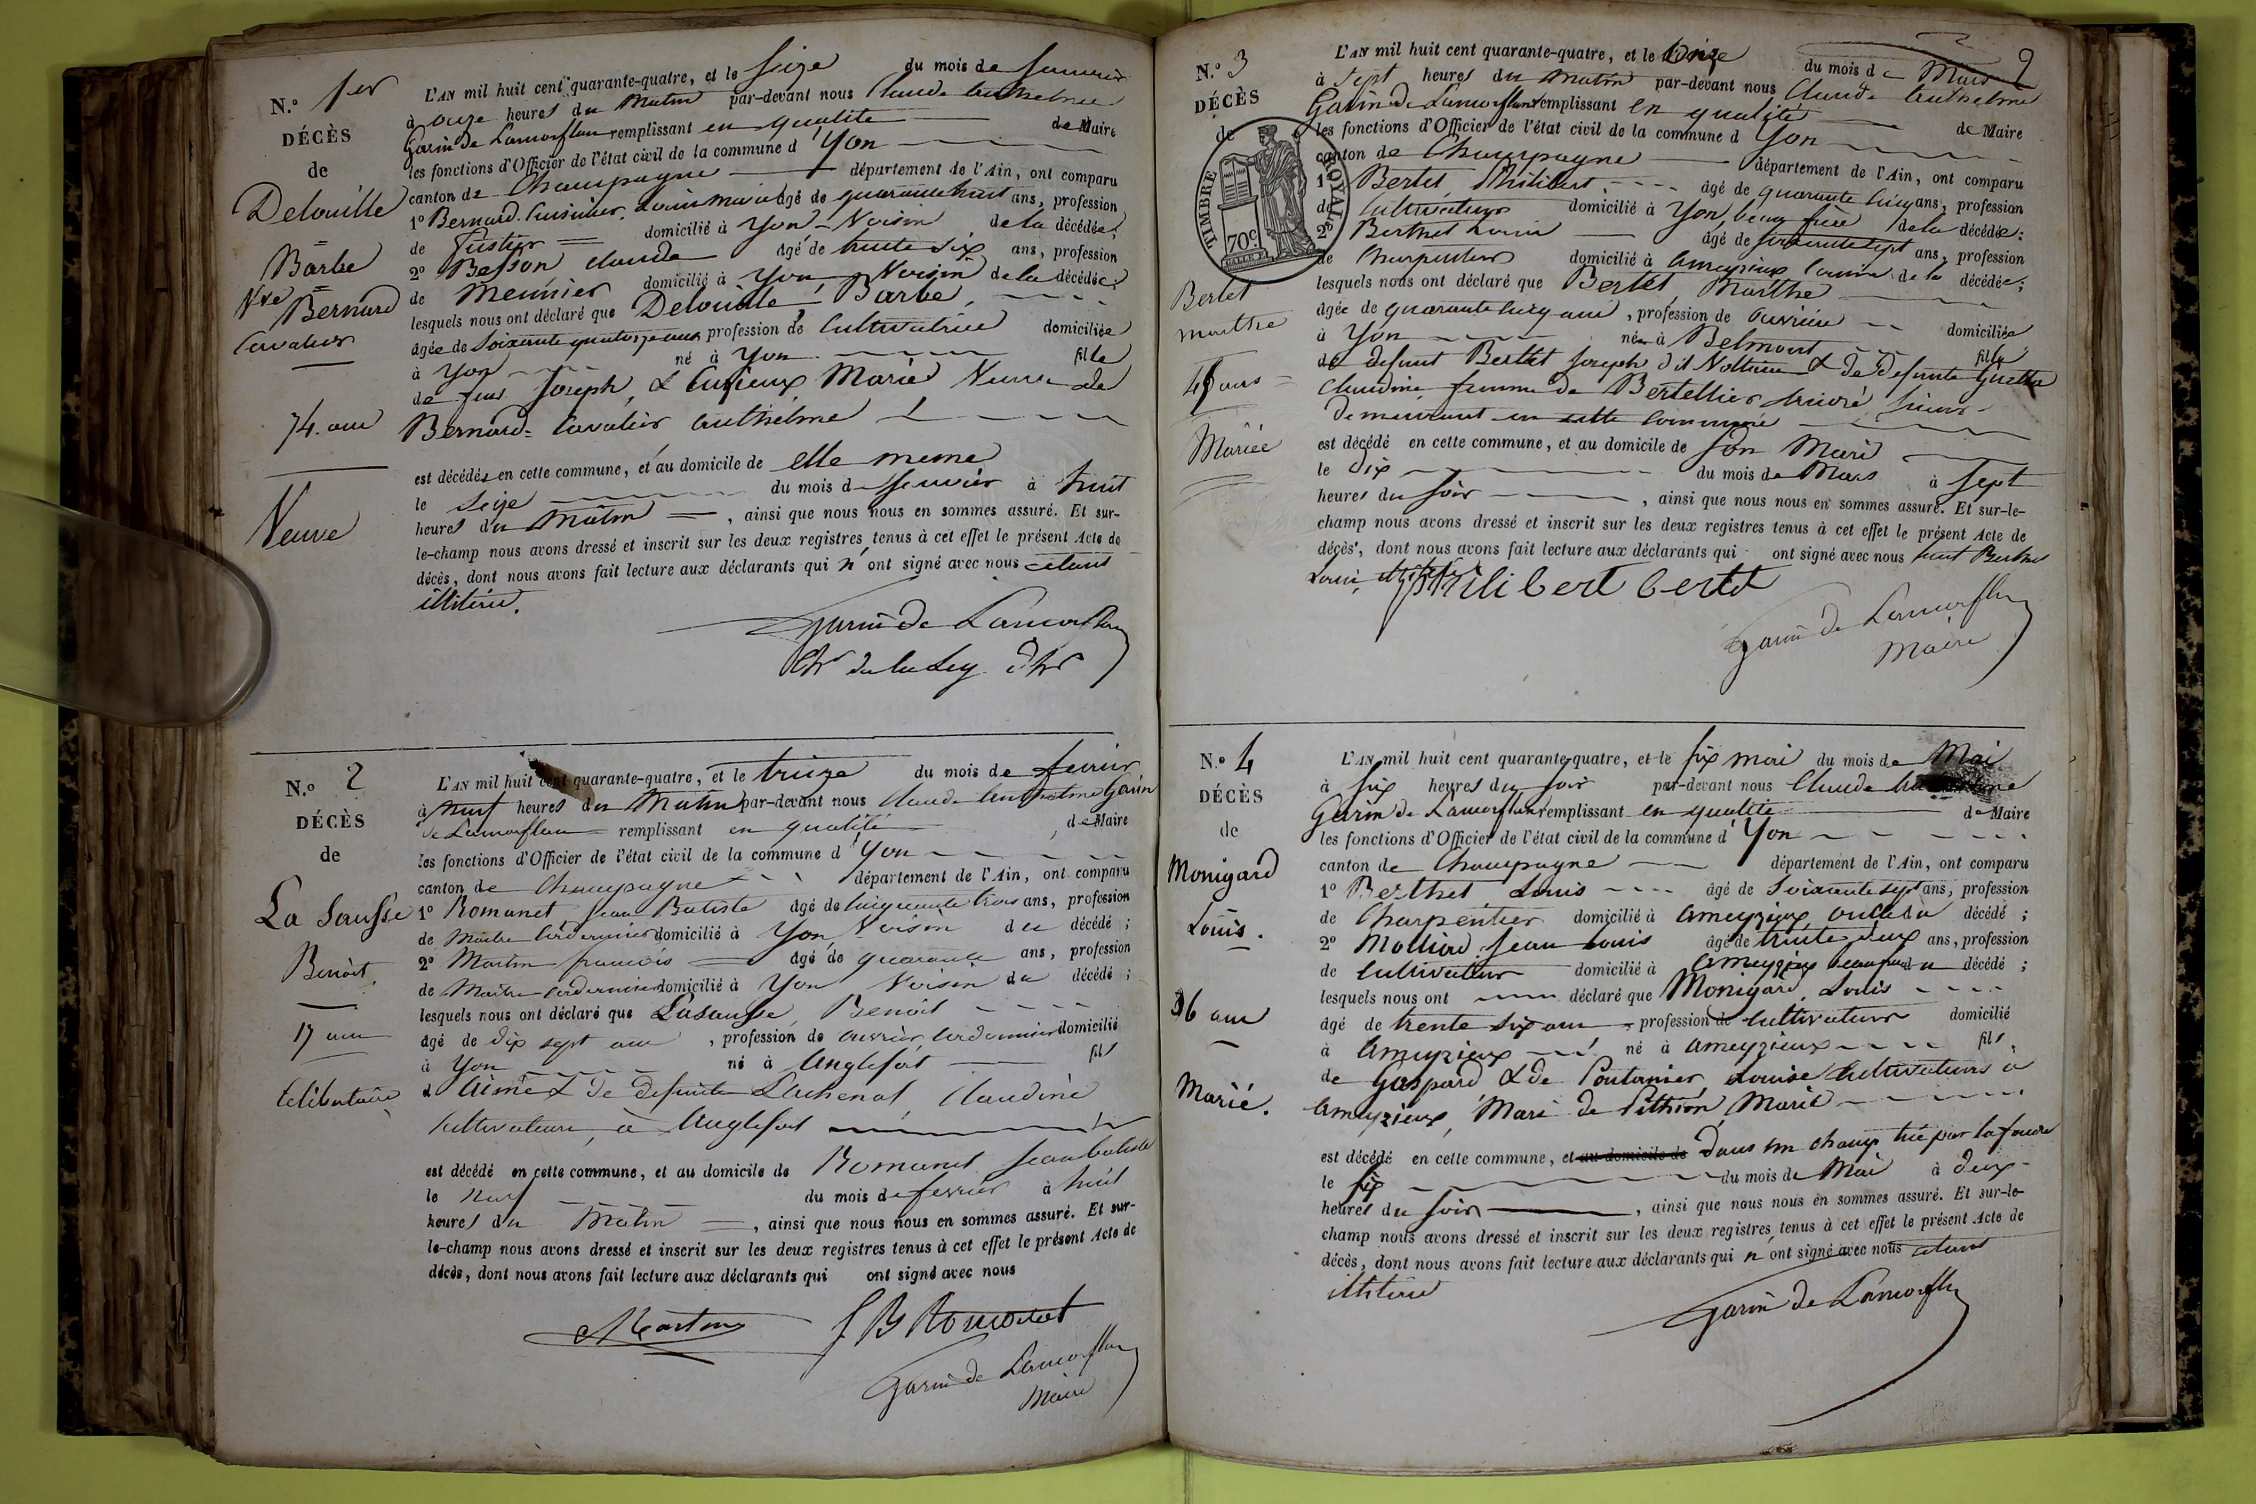 N.º 1er
DÉCÈS
de
Delouille
Barbe
Vve Bernard
Cavalier
74 ans
Veuve
L'AN mil huit cent quarante-quatre, et le Seize du mois de Janvier
à onze heures du Matin par-devant nous Claude Anthelme
Garin de Lamorflan remplissant en qualité de Maire
les fonctions d'Officier de l'état civil de la commune d'Yon
canton de Champagne département de l'Ain, ont comparu
1º Bernard Louis Marie âgé de quarante huit ans, profession
de domicilié à Yon Voisin de la décédée;
2º Besson Claude âgé de trente six ans, profession
de Meunier domicilié à Yon Voisin de la décédée;
lesquels nous ont déclaré que Delouille Barbe,
âgée de Soixante quatorze ans profession de Cultivatrice domiciliée
à Yon né à Yon fille
de feus Joseph, & Marie Veuve de
Bernard-Cavalier Anthelme
est décédée en cette commune, et au domicile de elle meme
le Seize du mois de Janvier à huit
heures du Matin, ainsi que nous nous en sommes assuré. Et sur-
le-champ nous avons dressé et inscrit sur les deux registres tenus à cet effet le présent Acte de
décès, dont nous avons fait lecture aux déclarants qui n'ont signé avec nous étant
illitérés.
Garin de Lamorflan
N.º 2
DÉCÈS
de
La Sausse
Benoit
17 ans
Célibataire
L'AN mil huit cent quarante-quatre, et le treize du mois de février
à neuf heures du Matin par-devant nous Claude Anthelme Garin
de Lamorflan remplissant en qualité de Maire
les fonctions d'Officier de l'état civil de la commune d'Yon
canton de Champagne département de l'Ain, ont comparu
1º Romanet Jean Batiste âgé de cinquante trois ans, profession
de Maitre Cordonnier domicilié à Yon Voisin du décédé;
2º Martin françois âgé de quarante ans, profession
de Maitre Cordonnier domicilié à Yon Voisin du décédé;
lesquels nous ont déclaré que Lasausse Benoit
âgé de dix sept ans, profession de ouvrier cordonnier domicilié
à Yon né à Anglefort fils
d'Aimé & de defunte Lachenal Claudine
Cultivateurs à Anglefort
est décédé en cette commune, et au domicile de Romanet Jean batiste
le neuf du mois de fevrier à huit
heures du Matin, ainsi que nous nous en sommes assuré. Et sur-
le-champ nous avons dressé et inscrit sur les deux registres tenus à cet effet le présent Acte de
décès, dont nous avons fait lecture aux déclarants qui ont signé avec nous
Martin J B Romanet
Garin de Lamorflan
Maire
2
N.º 3
DÉCÈS
de
TIMBRE ROYAL
70 c.
Bertet
marthe
45 ans
Mariée
L'AN mil huit cent quarante-quatre, et le onze du mois de Mars
à Sept heures du matin par-devant nous Claude Anthelme
Garin de Lamorflan remplissant en qualité de Maire
les fonctions d'Officier de l'état civil de la commune d'Yon
canton de Champagne département de l'Ain, ont comparu
1º Bertet Philibert âgé de quarante cinq ans, profession
de Cultivateur domicilié à Yon, beau frère de la décédée;
2º Berthet Louis âgé de soixante sept ans, profession
de Charpentier domicilié à Ameyzieux Cousin de la décédée;
lesquels nous ont déclaré que Bertet Marthe
âgée de quarante cinq ans, profession de ouvrière domiciliée
à Yon née à Belmont fille
de defunt Bertet Joseph dit & de defunte
Claudine, femme de Bertellier
Demeurant en cette commune
est décédé en cette commune, et au domicile de Son Mari
le dix du mois de Mars à Sept
heures du Soir, ainsi que nous nous en sommes assuré. Et sur-le-
champ nous avons dressé et inscrit sur les deux registres tenus à cet effet le présent Acte de
décès, dont nous avons fait lecture aux déclarants qui ont signé avec nous sauf Berthet
Louis, illitéré
Philibert bertet
Garin de Lamorflan
Maire
N.º 4
DÉCÈS
de
Monigard
Louis.
36 ans
Marié.
L'AN mil huit cent quarante-quatre, et le Six mai du mois de Mai
à Six heures du Soir par-devant nous Claude Anthelme
Garin de Lamorflan remplissant en qualité de Maire
les fonctions d'Officier de l'état civil de la commune d'Yon
canton de Champagne département de l'Ain, ont comparu
1º Berthet Louis âgé de Soixante Sept ans, profession
de Charpentier domicilié à Ameyzieux oncle du décédé;
2º Molliard Jean Louis âgé de trente deux ans, profession
de Cultivateur domicilié à Ameyzieux du décédé;
lesquels nous ont déclaré que Monigard Louis
âgé de trente six ans, profession de Cultivateur domicilié
à Ameyzieux né à Ameyzieux fils
de Gaspard & de Pontanier Louise Cultivateurs à
Ameyzieux, Mari de Pithion Marie
est décédé en cette commune, et au domicile de Dans un champ tué par la foudre
le Six du mois de Mai à deux
heures du Soir, ainsi que nous nous en sommes assuré. Et sur-le-
champ nous avons dressé et inscrit sur les deux registres tenus à cet effet le présent Acte de
décès, dont nous avons fait lecture aux déclarants qui n'ont signé avec nous étant
illitérés
Garin de Lamorflan